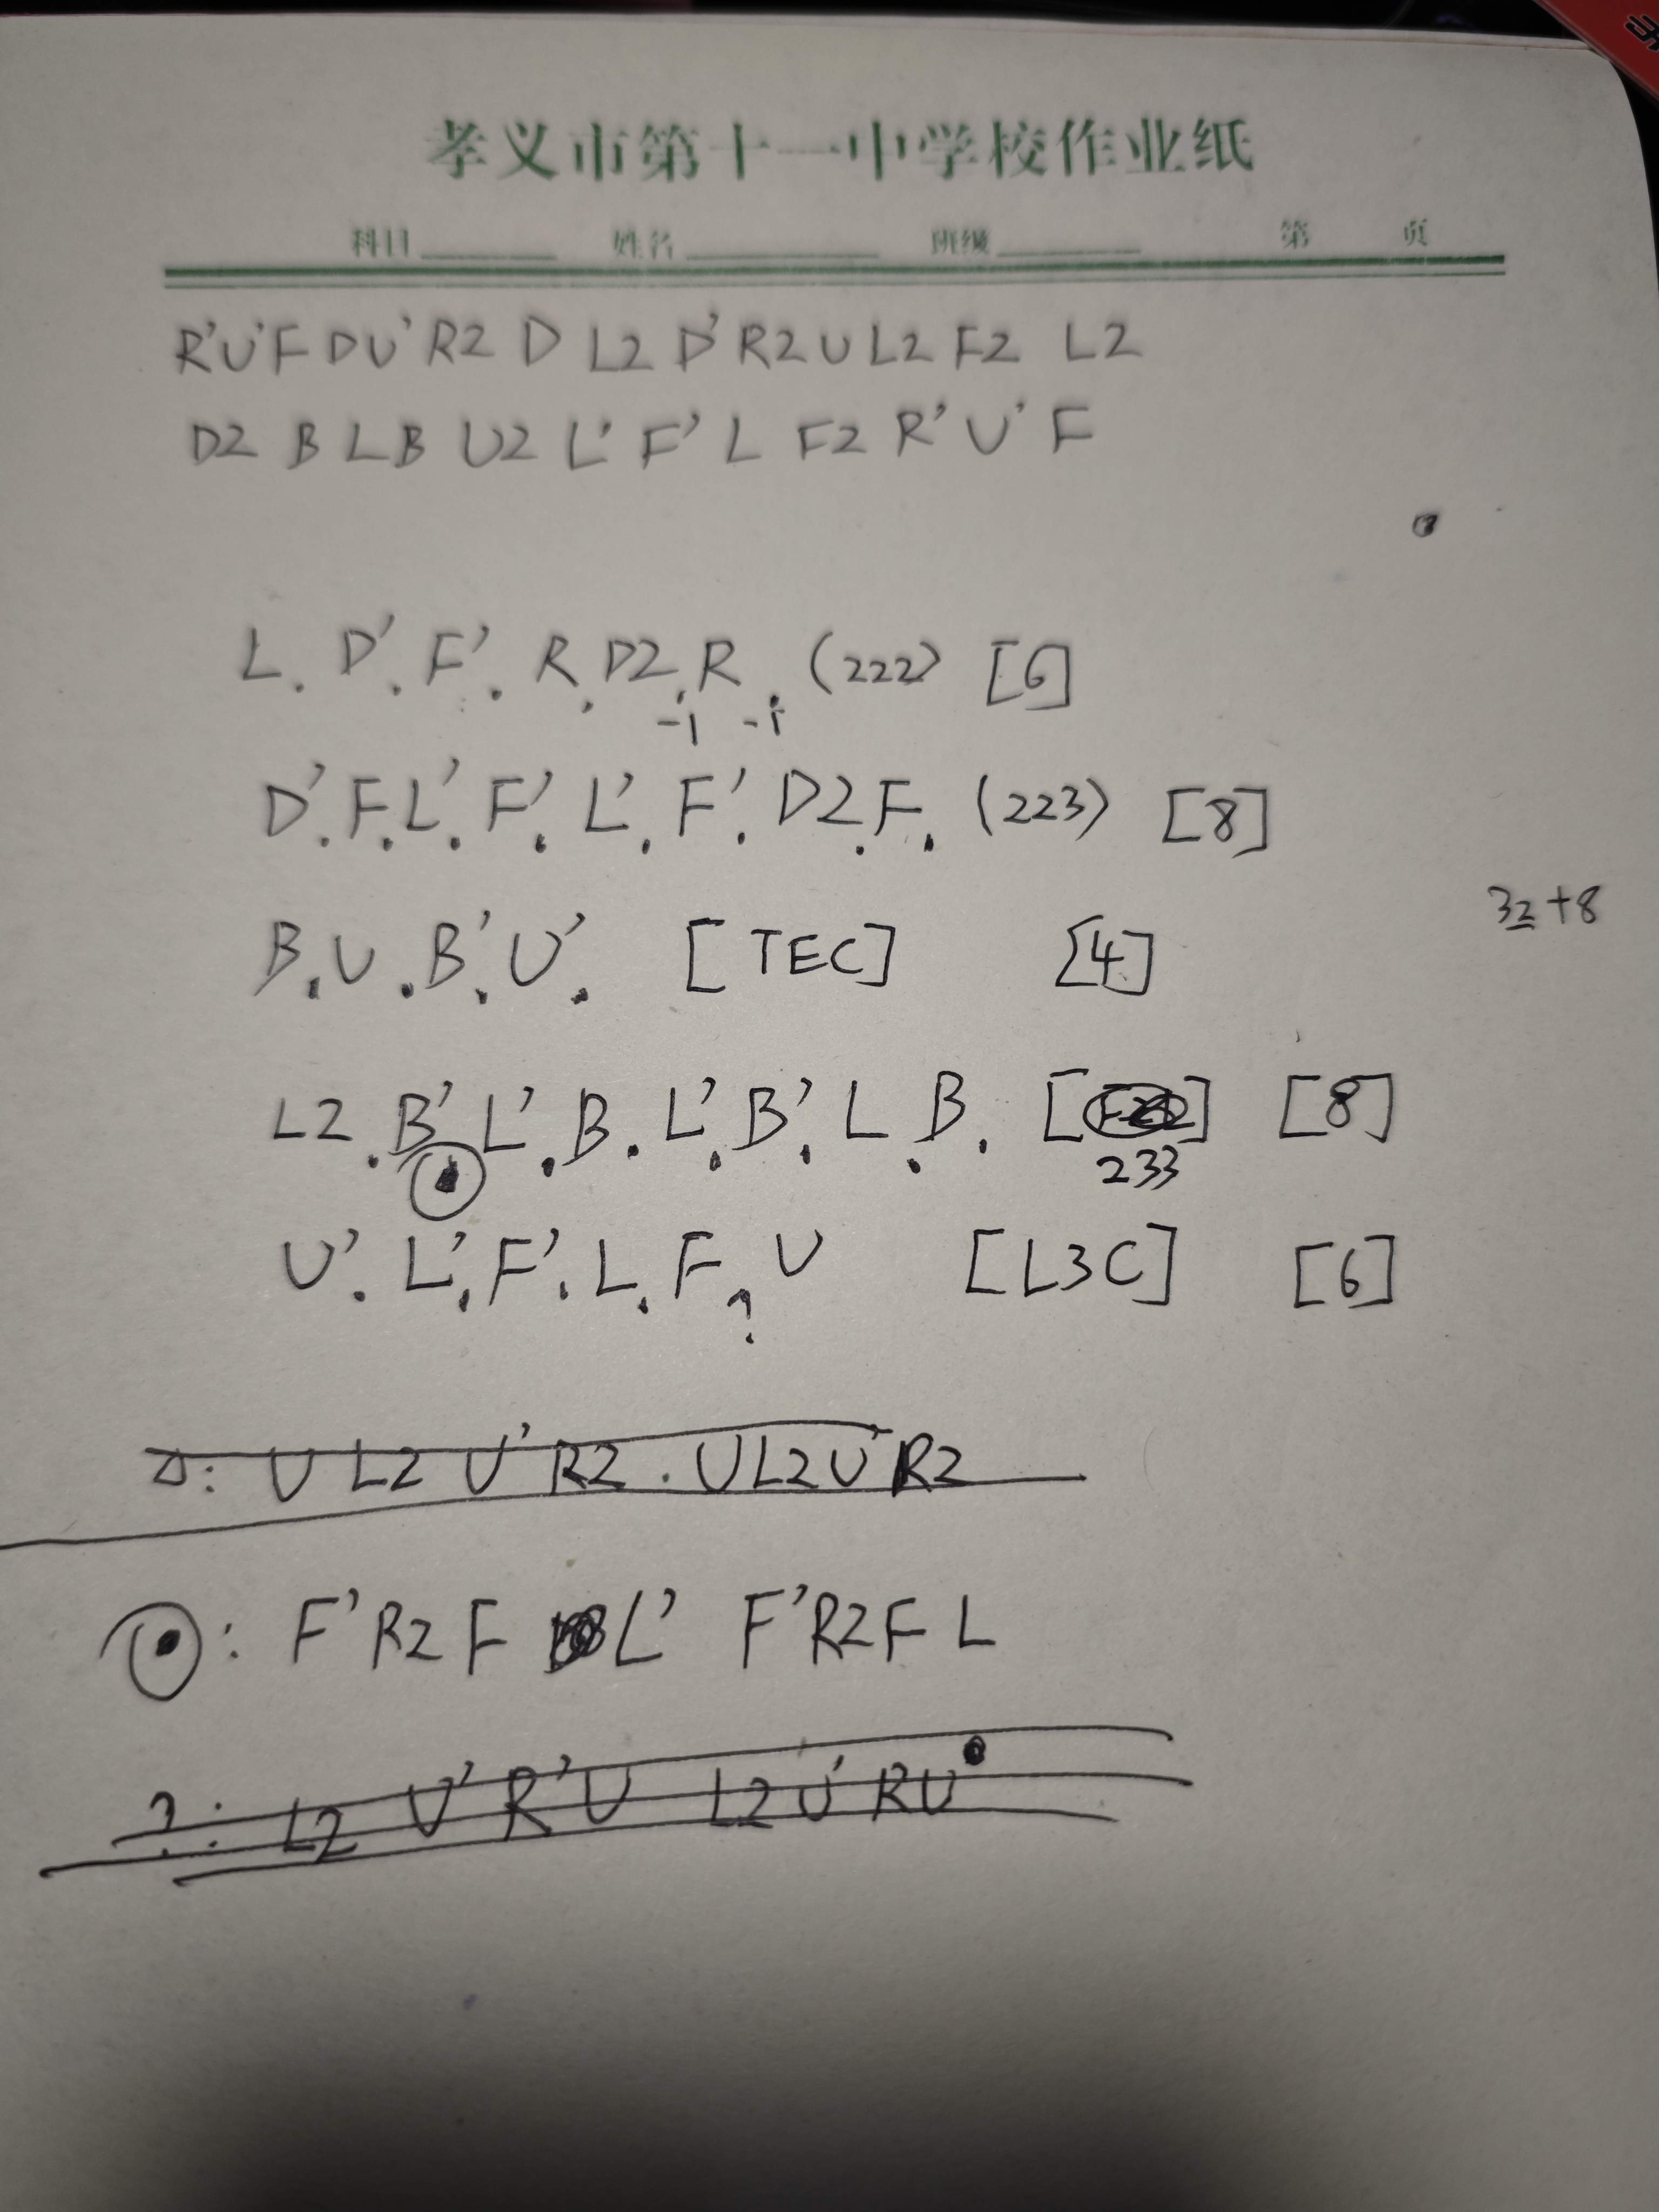 孝义市第十一中学校作业纸
科目 姓名 班级 第 页
R'U'F DU' R2 D L2 D' R2 U L2 F2 L2
D2 B L B U2 L' F' L F2 R' U' F
L. D'. F'. R. D2. R. (222) [6]
-1 -1
D'. F. L'. F'. L'. F'. D2. F. (223) [8]
32+8
B. U. B'. U'. [TEC] [4]
L2. B' L'. B. L'. B'. L. B. [] [8]
233
U'. L'. F'. L. F ? U [L3C] [6]
△: U L2 U' R2 . U L2 U' R2
: F' R2 F L' F' R2 F L
?: L2 U' R' U L2 U' R U